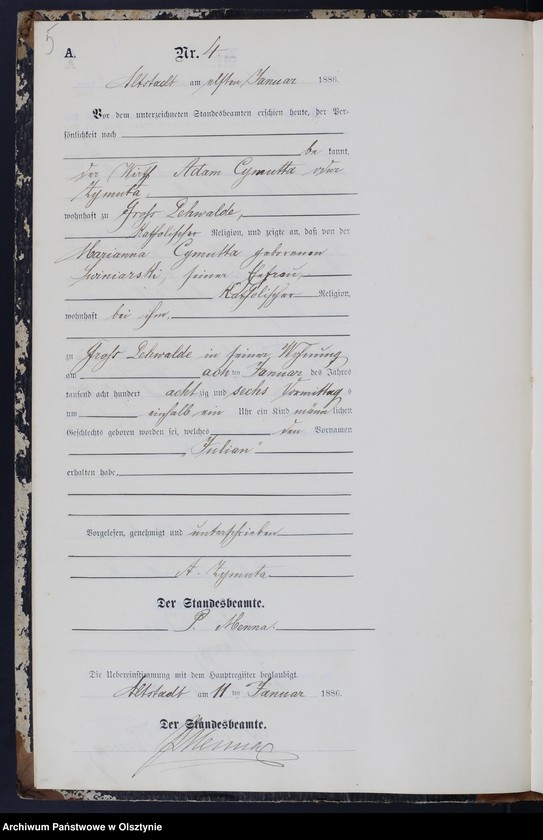 5
A. Nr. 4
Altstadt am elften Januar 1886.
Vor dem unterzeichneten Standesbeamten erschien heute, der Per-
sönlichkeit nach
be kannt,
der Wirth Adam Cymutta oder
Zymuta,
wohnhaft zu Groß Lehwalde,
Katholischer Religion, und zeigte an, daß von der
Marianna Cymutta geborenen
seiner Ehefrau,
Katholischer Religion,
wohnhaft bei ihm,
zu Groß Lehwalde in seiner Wohnung
am achten Januar des Jahres
tausend acht hundert acht zig und sechs Vormittags
um einhalb ein Uhr ein Kind männ lichen
Geschlechts geboren worden sei, welches den Vornamen
„Julian“
erhalten habe.
Vorgelesen, genehmigt und unterschrieben
A. Zymuta
Der Standesbeamte.
P. Menna.
Die Uebereinstimmung mit dem Hauptregister beglaubigt.
Altstadt am 11 ten Januar 1886.
Der Standesbeamte.
PMenna
Archiwum Państwowe w Olsztynie